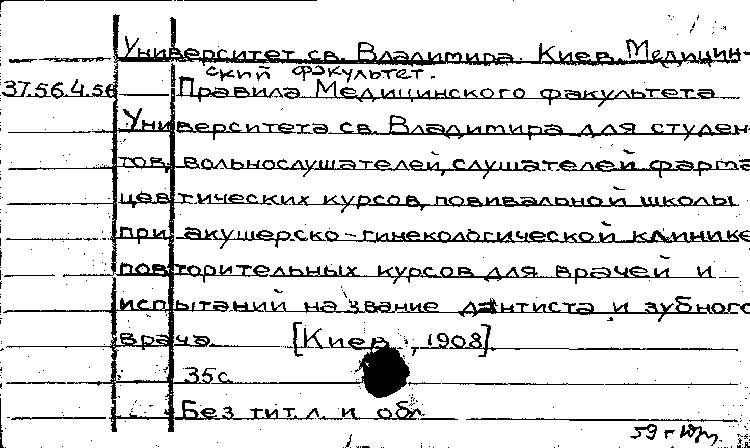 Университет св. Владимира. Киев. Медицин-
ский факультет.
37.56.4.56 Правила Медицинского факультета
Университета св. Владимира для студен
тов, вольнослушателей, слушателей фарма
цевтических курсов, повивальной школы
при акушерско-гинекологической клинике
повторительных курсов для врачей и
испытаний на звание дантиста и зубного
врача. [Киев, 1908].
35с.
Без тит. л. и обл.